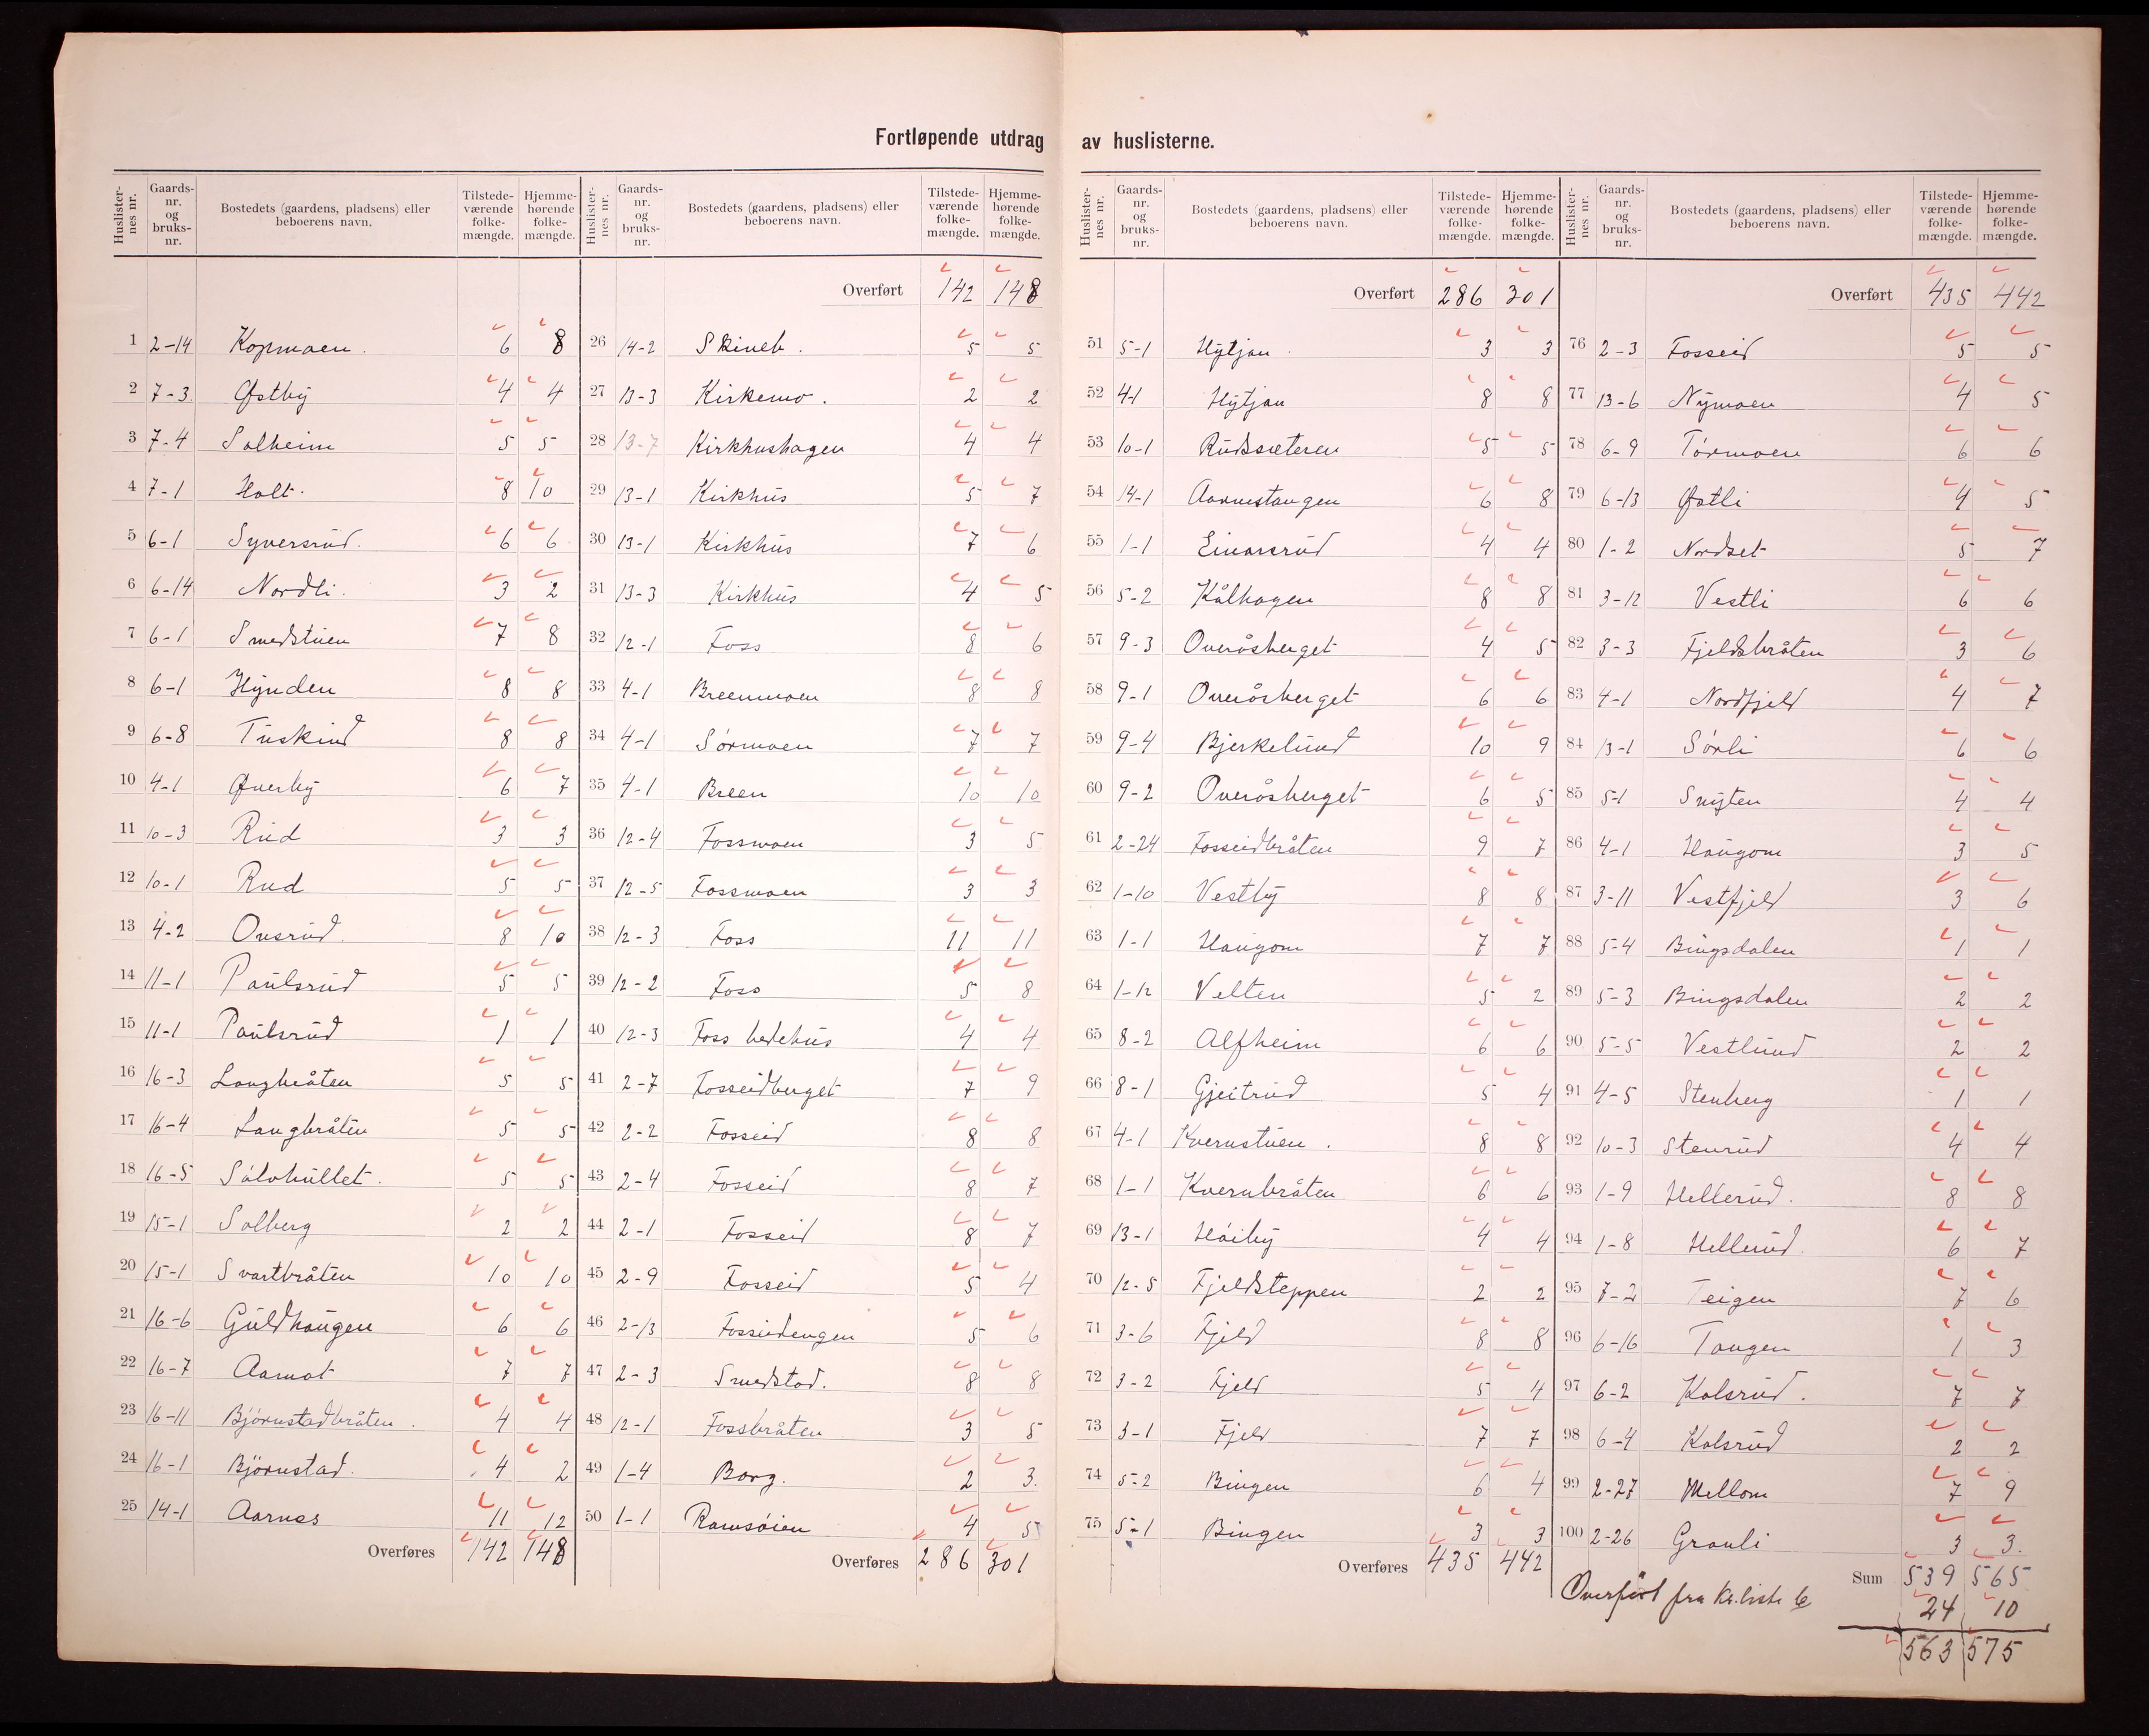 Fortløpende utdrag av huslisterne.
Huslister-nes nr. | Gaards-nr. og bruks-nr. | Bostedets (gaardens, pladsens) eller beboerens navn. | Tilstede-værende folke-mængde. | Hjemme-hørende folke-mængde.
1 2-14 Kopmoen. 6 8
2 7-3 Østby 4 4
3 7-4 Solheim 5 5
4 7-1 Holt. 8 10
5 6-1 Syversrud. 6 6
6 6-14 Nordli. 3 2
7 6-1 Smedstuen 7 8
8 6-1 Hynden 8 8
9 6-8 Tuskind 8 8
10 4-1 Øverby 6 7
11 10-3 Rud 3 3
12 10-1 Rud 5 5
13 4-2 Ovsrud 8 10
14 11-1 Paulsrud 5 5
15 11-1 Paulsrud 1 1
16 16-3 Langbråten 5 5
17 16-4 Langbråten 5 5
18 16-5 Sölvhullet. 5 5
19 15-1 Solberg 2 2
20 15-1 Svartbråten 10 10
21 16-6 Guldhaugen 6 6
22 16-7 Aamot 7 7
23 16-11 Björnstadbråten. 4 4
24 16-1 Björnstad. 4 2
25 14-1 Aarnes 11 12
Overføres 142 148
Huslister-nes nr. | Gaards-nr. og bruks-nr. | Bostedets (gaardens, pladsens) eller beboerens navn. | Tilstede-værende folke-mængde. | Hjemme-hørende folke-mængde.
Overført 142 148
26 14-2 5 5
27 13-3 Kirkemo. 2 2
28 13-7 Kirkhushagen 4 4
29 13-1 Kirkhus 5 7
30 13-1 Kirkhus 7 6
31 13-3 Kirkhus 4 5
32 12-1 Foss 8 6
33 4-1 Breenmoen 8 8
34 4-1 Sörmoen 7 7
35 4-1 Breen 10 10
36 12-4 Fossmoen 3 5
37 12-5 Fossmoen 3 3
38 12-3 Foss 11 11
39 12-2 Foss 5 8
40 12-3 Foss bedehus 4 4
41 2-7 Fosseidberget 7 9
42 2-2 Fosseid 8 8
43 2-4 Fosseid 8 7
44 2-1 Fosseid 8 7
45 2-9 Fosseid 5 4
46 2-13 Fosseidengen 5 6
47 2-3 Smedstad. 8 8
48 12-1 Fossbråten 3 5
49 1-4 Borg. 2 3.
50 1-1 Ramsöien 4 5
Overføres 286 301
Huslister-nes nr. | Gaards-nr. og bruks-nr. | Bostedets (gaardens, pladsens) eller beboerens navn. | Tilstede-værende folke-mængde. | Hjemme-hørende folke-mængde.
Overført 286 301
51 5-1 Hytjan. 3 3
52 4-1 Hytjan 8 8
53 10-1 Rudsæteren 5 5
54 14-1 Aarnestangen 6 8
55 1-1 Einarsrud 4 4
56 5-2 Kålhagen 8 8
57 9-3 Overåsberget 4 5
58 9-1 Overåsberget 6 6
59 9-4 Bjerkelund 10 9
60 9-2 Overåsberget 6 5
61 2-24 Fosseidbråten 9 7
62 1-10 Vestby 8 8
63 1-1 Haugom 7 7
64 1-12 Velten 5 2
65 8-2 Alfheim 6 6
66 8-1 Gjeitrud 5 4
67 4-1 Kvernstuen. 8 8
68 1-1 Kvernbråten 6 6
69 13-1 Höiby 4 4
70 12-5 Fjeldsteppen 2 2
71 3-6 Fjeld 8 8
72 3-2 Fjeld 5 4
73 3-1 Fjeld 7 7
74 5-2 Bingen 6 4
75 5-1 Bingen 3 3
Overføres 435 442
Huslister-nes nr. | Gaards-nr. og bruks-nr. | Bostedets (gaardens, pladsens) eller beboerens navn. | Tilstede-værende folke-mængde. | Hjemme-hørende folke-mængde.
Overført 435 442
76 2-3 Fosseid 5 5
77 13-6 Nymoen 4 5
78 6-9 Törmoen 6 6
79 6-13 Østli 4 5
80 1-2 Nordset 5 7
81 3-12 Vestli 6 6
82 3-3 Fjeldsbråten 3 6
83 4-1 Nordfjeld 4 7
84 13-1 Sörli 6 6
85 5-1 Snyten 4 4
86 4-1 Haugom 3 5
87 3-11 Vestfjeld 3 6
88 5-4 Bingsdalen 1 1
89 5-3 Bingsdalen 2 2
90 5-5 Vestlund 2 2
91 4-5 Stenberg 1 1
92 10-3 Stenrud 4 4
93 1-9 Hellerud. 8 8
94 1-8 Hellerud. 6 7
95 7-2 Teigen 7 6
96 6-16 Tangen 1 3
97 6-2 Kolsrud. 7 7
98 6-4 Kolsrud 2 2
99 2-27 Mellom 7 9
100 2-26 Granli 3 3.
Sum 539 565
Overført fra kr.liste 6 24 10
563 575